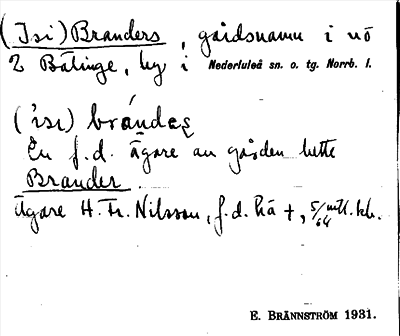 (Isi) Branders, gårdsnamn i nö
2 Bälinge, by i Nederluleå sn. o. tg. Norrb. l.
(ˈisɩ) brándəs̬
En f.d. ägare av gården hette
Brander.
Ägare H. Fr. Nilsson, f.d. hä +, 5/64 mtl. kr.
E. BRÄNNSTRÖM 1931.